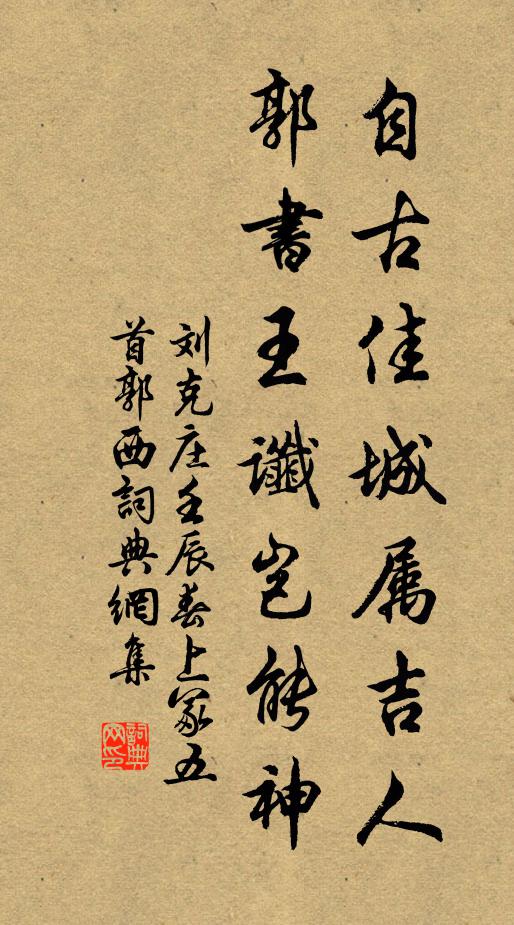 自古佳城属吉人
郭書王讖岂能神
刘克庄壬辰春上冢五
首郭西詞典網集
詞典
网印